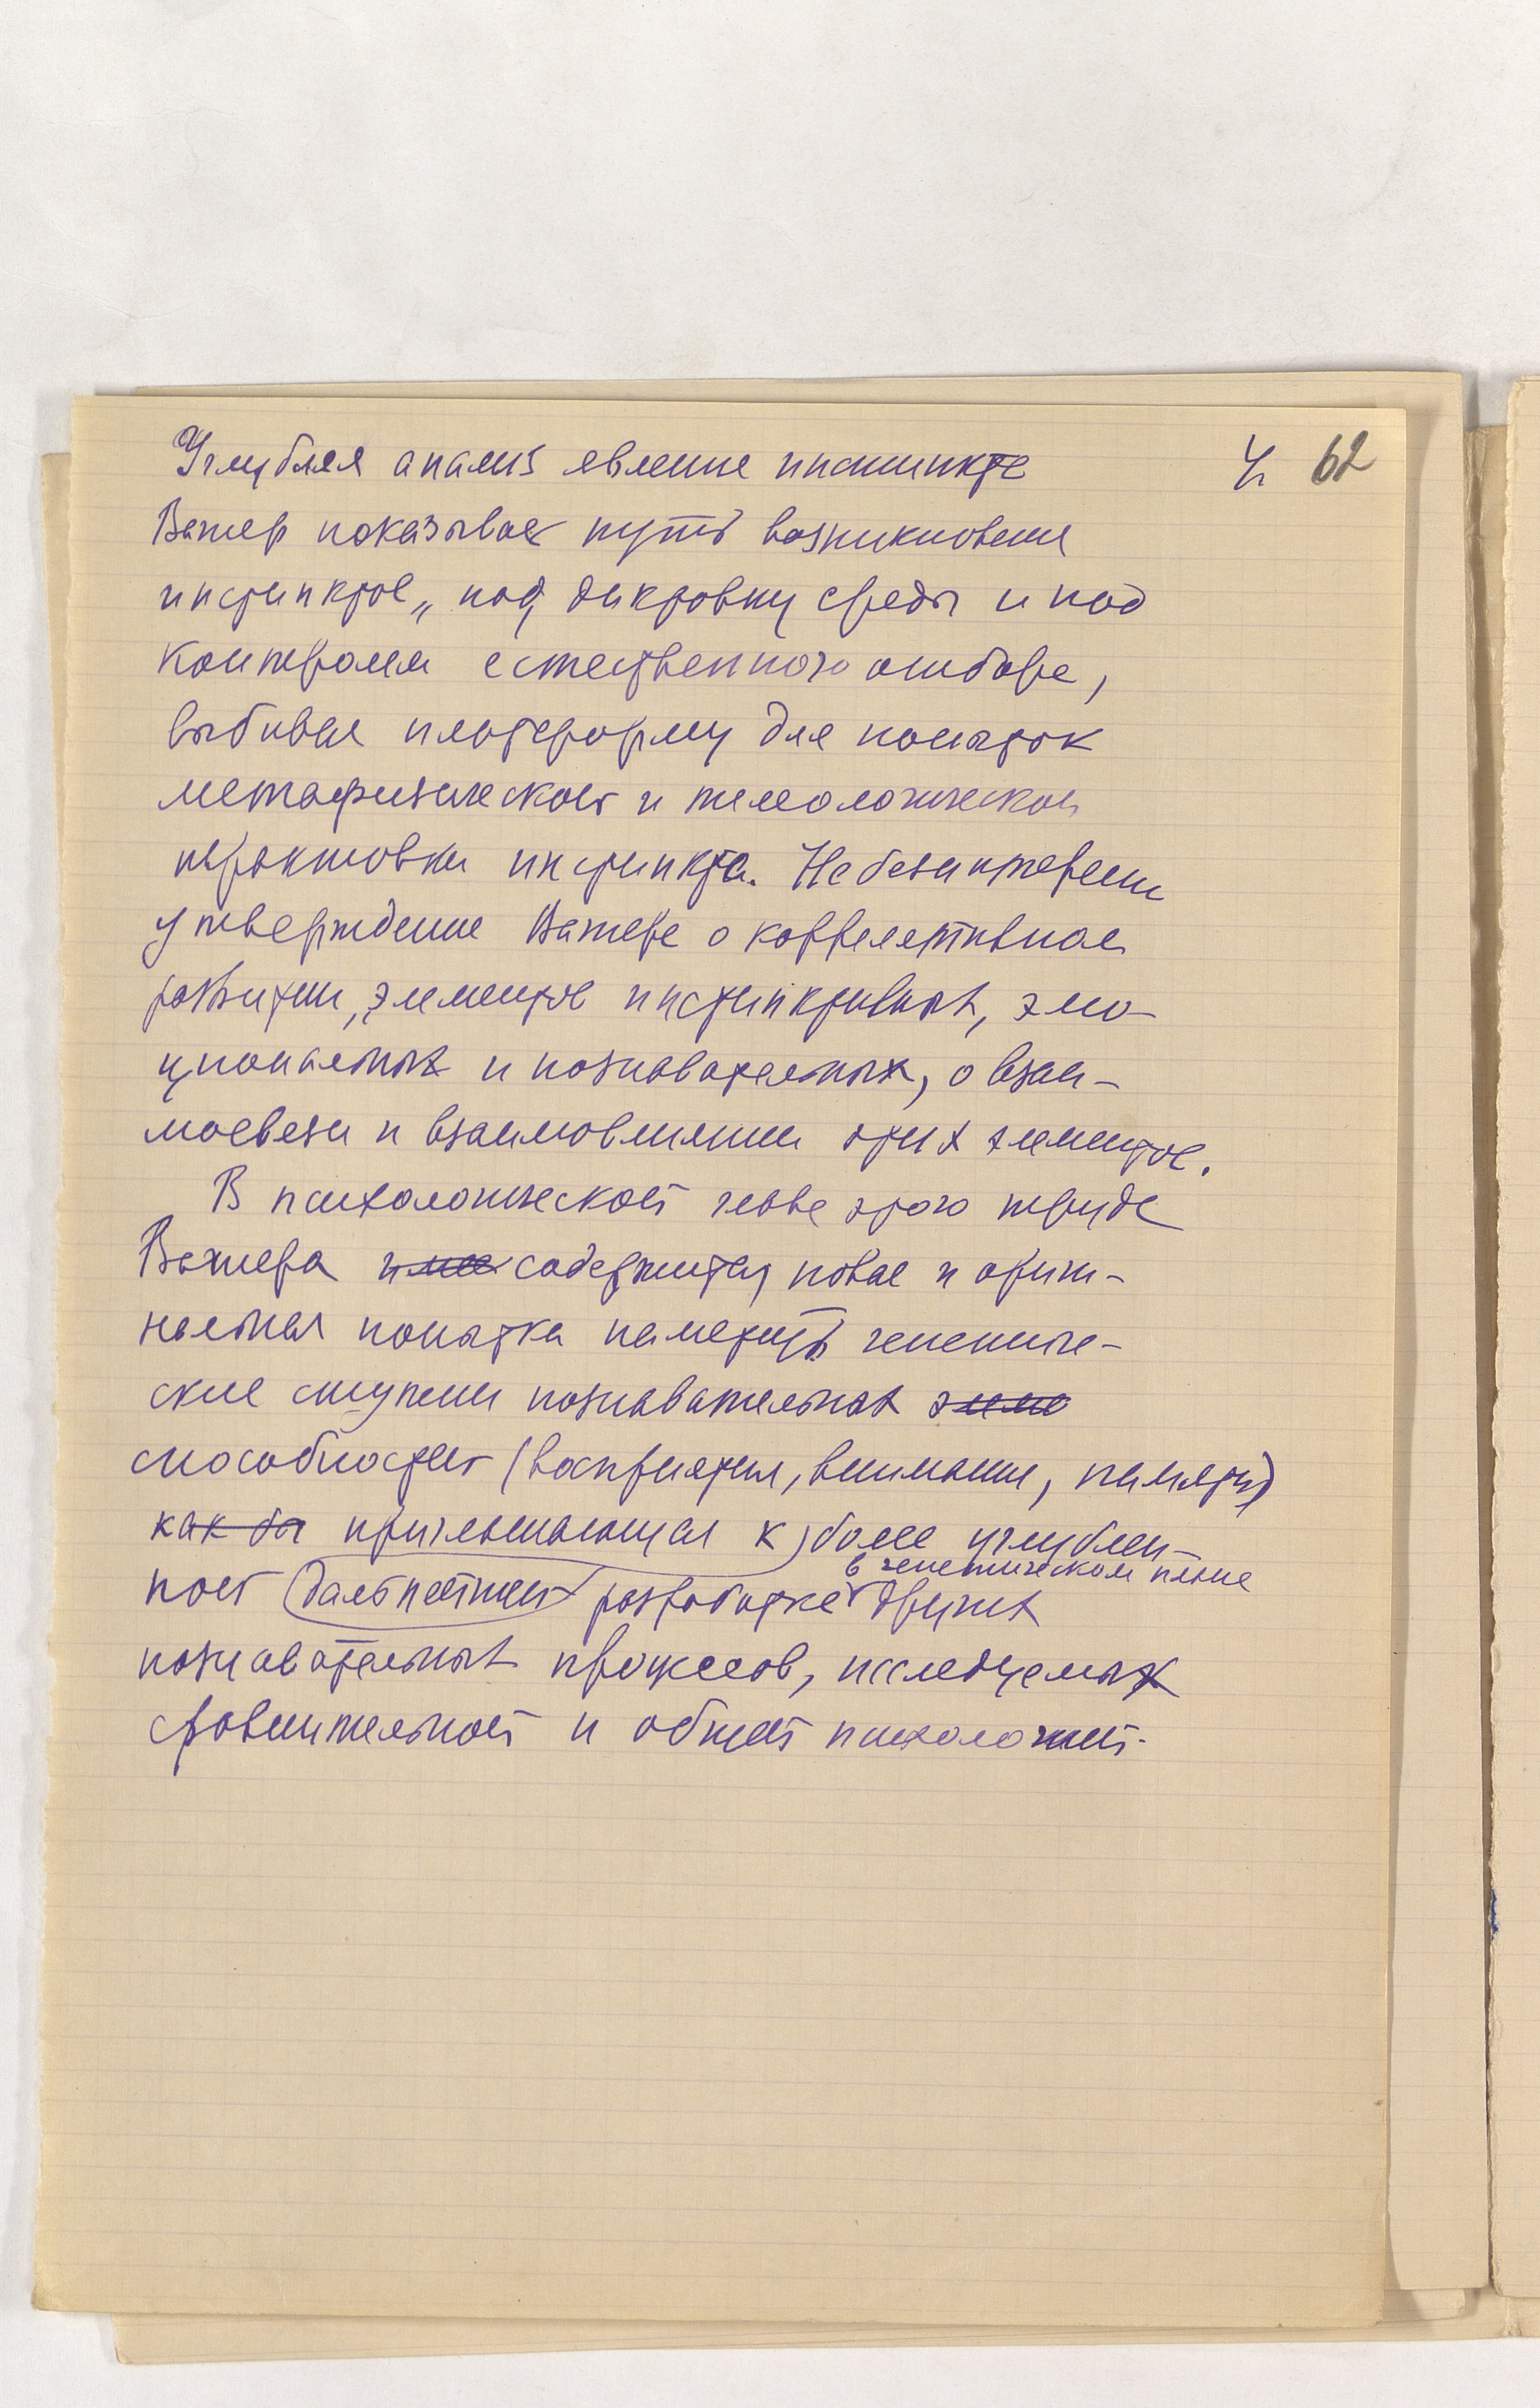 Углубляя анализ явление инстинкта 4. 62
Вагнер показывает путь возникновения
инстинктов „под диктовку среды и под
контролем естественного отбора,
выбивая платформу для попыток
метафизической и телеологической
трактовки инстинкта. Небезинтересны
утверждение Вагнера о коррелятивном
развитии, элементов инстинктивных, эмо-
циональных и познавательных, о взаи-
мосвязи и взаимовлиянии этих элементов.
В психологической главе этого труда
Вагнера име содержится новая и ориги-
нальная попытка наметить генетиче-
ские ступени познавательных
способностей (восприятия, внимания, памяти)
как бы приглашающая к более углублен-
в генетическом плане
ной дальнейшей разработке других
познавательных процессов, исследуемых
сравнительной и общей психологией.